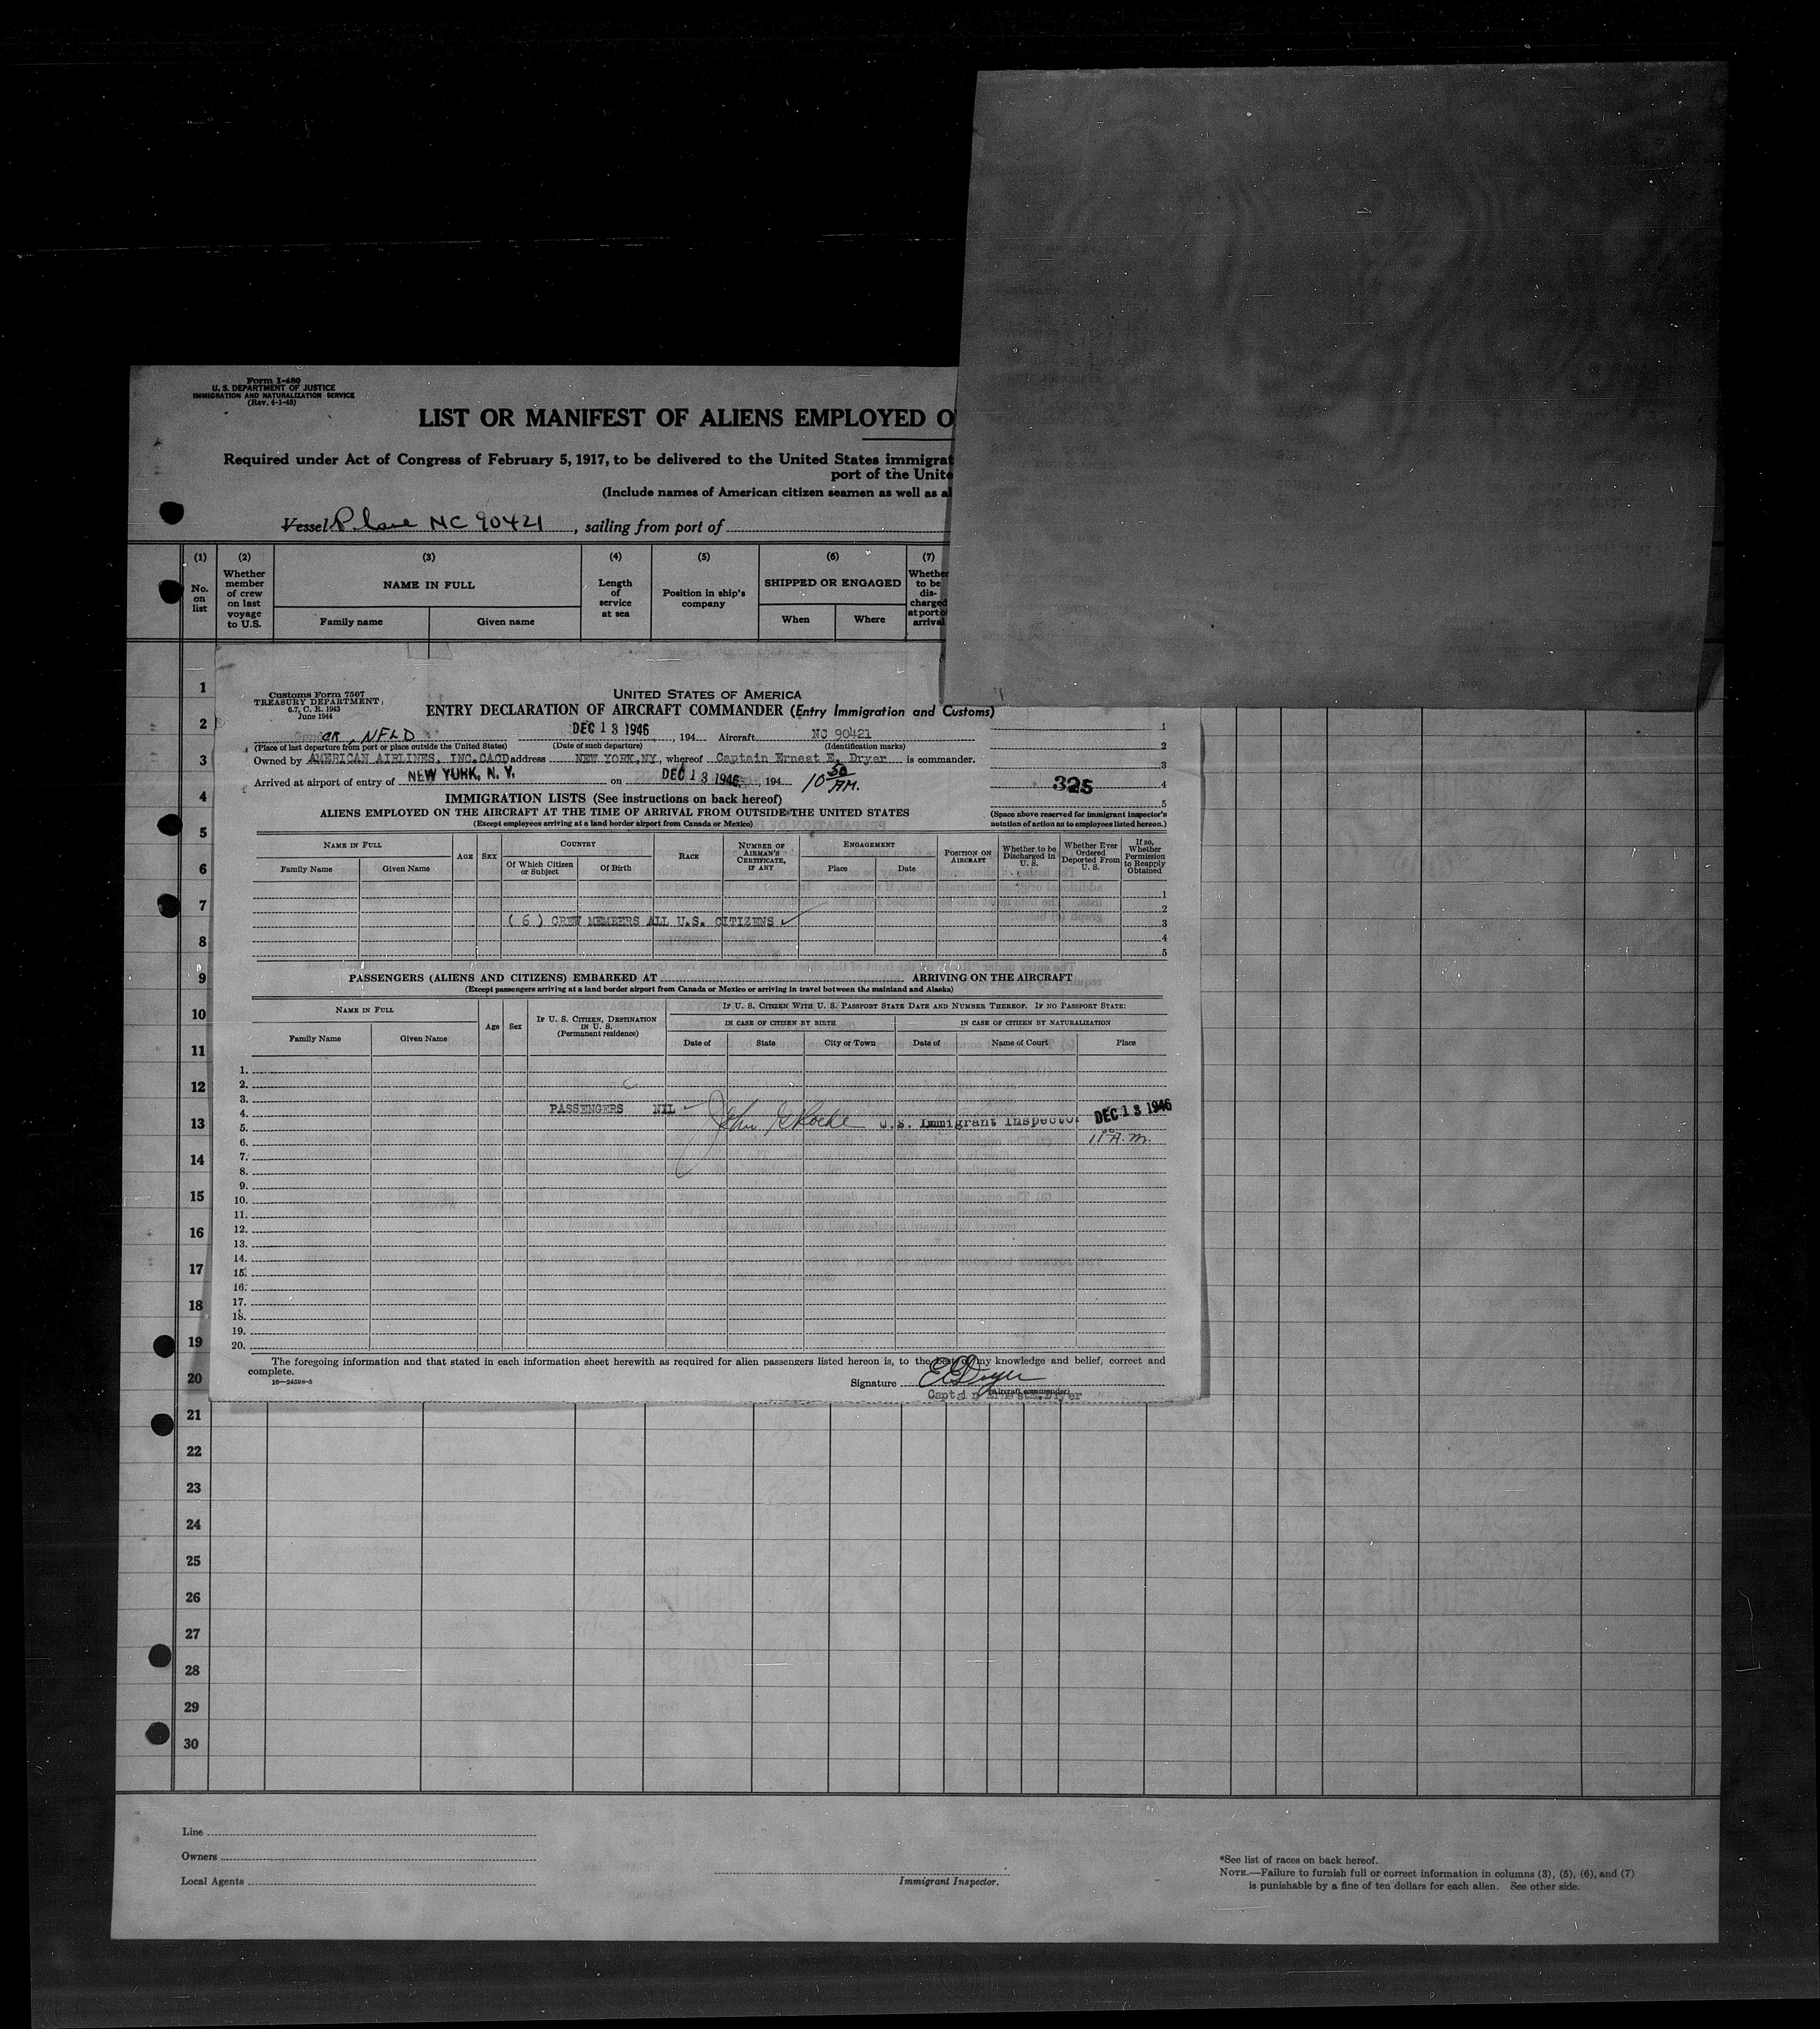 Form I-480
U. S. DEPARTMENT OF JUSTICE
IMMIGRATION AND NATURALIZATION SERVICE
(Rev. 4-1-45)
LIST OR MANIFEST OF ALIENS EMPLOYED O
Required under Act of Congress of February 5, 1917, to be delivered to the United States immigrat
port of the Unite
(Include names of American citizen seamen as well as al
Vessel Plane NC 90421, sailing from port of
(1) (2) (3) (4) (5) (6) (7)
No. on list
Whether member of crew on last voyage to U.S.
NAME IN FULL
Family name Given name
Length of service at sea
Position in ship's company
SHIPPED OR ENGAGED
When Where
Whether to be dis-charged at port o arrival
1
2
3
4
5
6
7
8
9
10
11
12
13
14
15
16
17
18
19
20
21
22
23
24
25
26
27
28
29
30
Customs Form 7507
TREASURY DEPARTMENT
6.7, C. R. 1943
June 1944
UNITED STATES OF AMERICA
ENTRY DECLARATION OF AIRCRAFT COMMANDER (Entry Immigration and Customs)
NFLD DEC 13 1946, 194 Aircraft NC 90421
(Place of last departure from port or place outside the United States) (Date of such departure) (Identification marks)
Owned by AMERICAN AIRLINES, INC. CACD address NEW YORK, NY, whereof Captain Ernest E. Dryer is commander.
Arrived at airport of entry of NEW YORK, N. Y. on DEC 13 1946, 194 10 50 AM.
1
2
3
325 4
5
IMMIGRATION LISTS (See instructions on back hereof)
ALIENS EMPLOYED ON THE AIRCRAFT AT THE TIME OF ARRIVAL FROM OUTSIDE THE UNITED STATES
(Except employees arriving at a land border airport from Canada or Mexico)
(Space above reserved for immigrant inspector's
notation of action as to employees listed hereon.)
NAME IN FULL
Family Name Given Name
AGE SEX
COUNTRY
Of Which Citizen or Subject Of Birth
RACE
NUMBER OF AIRMAN'S CERTIFICATE, IF ANY
ENGAGEMENT
Place Date
POSITION ON AIRCRAFT
Whether to be Discharged in U. S.
Whether Ever Ordered Deported From U. S.
If so, Whether Permission to Reapply Obtained
1
2
(6) CREW MEMBERS ALL U.S. CITIZENS 3
4
5
PASSENGERS (ALIENS AND CITIZENS) EMBARKED AT ARRIVING ON THE AIRCRAFT
(Except passengers arriving at a land border airport from Canada or Mexico or arriving in travel between the mainland and Alaska)
NAME IN FULL
Family Name Given Name
Age Sex
IF U. S. CITIZEN, DESTINATION IN U. S. (Permanent residence)
IF U. S. CITIZEN WITH U. S. PASSPORT STATE DATE AND NUMBER THEREOF. IF NO PASSPORT STATE:
IN CASE OF CITIZEN BY BIRTH IN CASE OF CITIZEN BY NATURALIZATION
Date of State City or Town Date of Name of Court Place
1.
2.
3.
4. PASSENGERS NIL DEC 13 1946
5. John U.S. Immigrant Inspector
6. 11 A.m.
7.
8.
9.
10.
11.
12.
13.
14.
15.
16.
17.
18.
19.
20.
The foregoing information and that stated in each information sheet herewith as required for alien passengers listed hereon is, to the best of my knowledge and belief, correct and
complete.
16—24598-5
Signature E E Dryer
(Aircraft commander)
Captain Ernest E. Dryer
Line
Owners
Local Agents
Immigrant Inspector.
*See list of races on back hereof.
NOTE.—Failure to furnish full or correct information in columns (3), (5), (6), and (7)
is punishable by a fine of ten dollars for each alien. See other side.